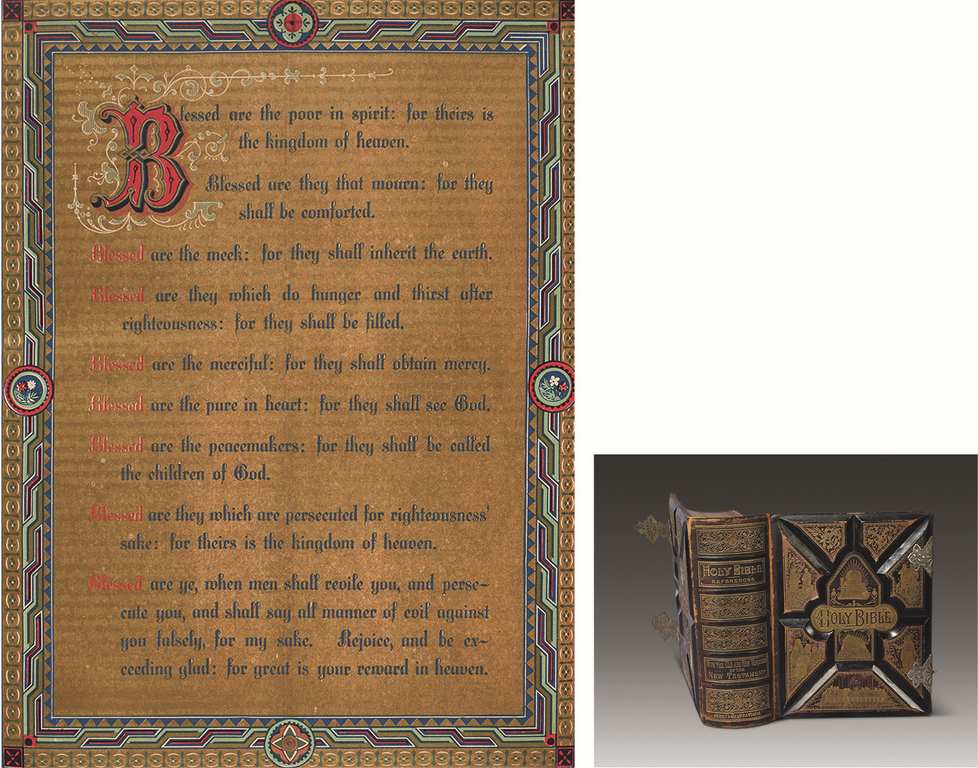 Blessed are the poor in spirit: for theirs is
the kingdom of heaven.
Blessed are they that mourn: for they
shall be comforted.
Blessed are the meek: for they shall inherit the earth.
Blessed are they which do hunger and thirst after
righteousness: for they shall be filled.
Blessed are the merciful: for they shall obtain mercy.
Blessed are the pure in heart: for they shall see God.
Blessed are the peacemakers: for they shall be called
the children of God.
Blessed are they which are persecuted for righteousness'
sake: for theirs is the kingdom of heaven.
Blessed are ye, when men shall revile you, and perse-
cute you, and shall say all manner of evil against
you falsely, for my sake. Rejoice, and be ex-
ceeding glad: for great is your reward in heaven.
HOLY BIBLE
REFERENCES
NEW TESTAMENT
HOLY BIBLE